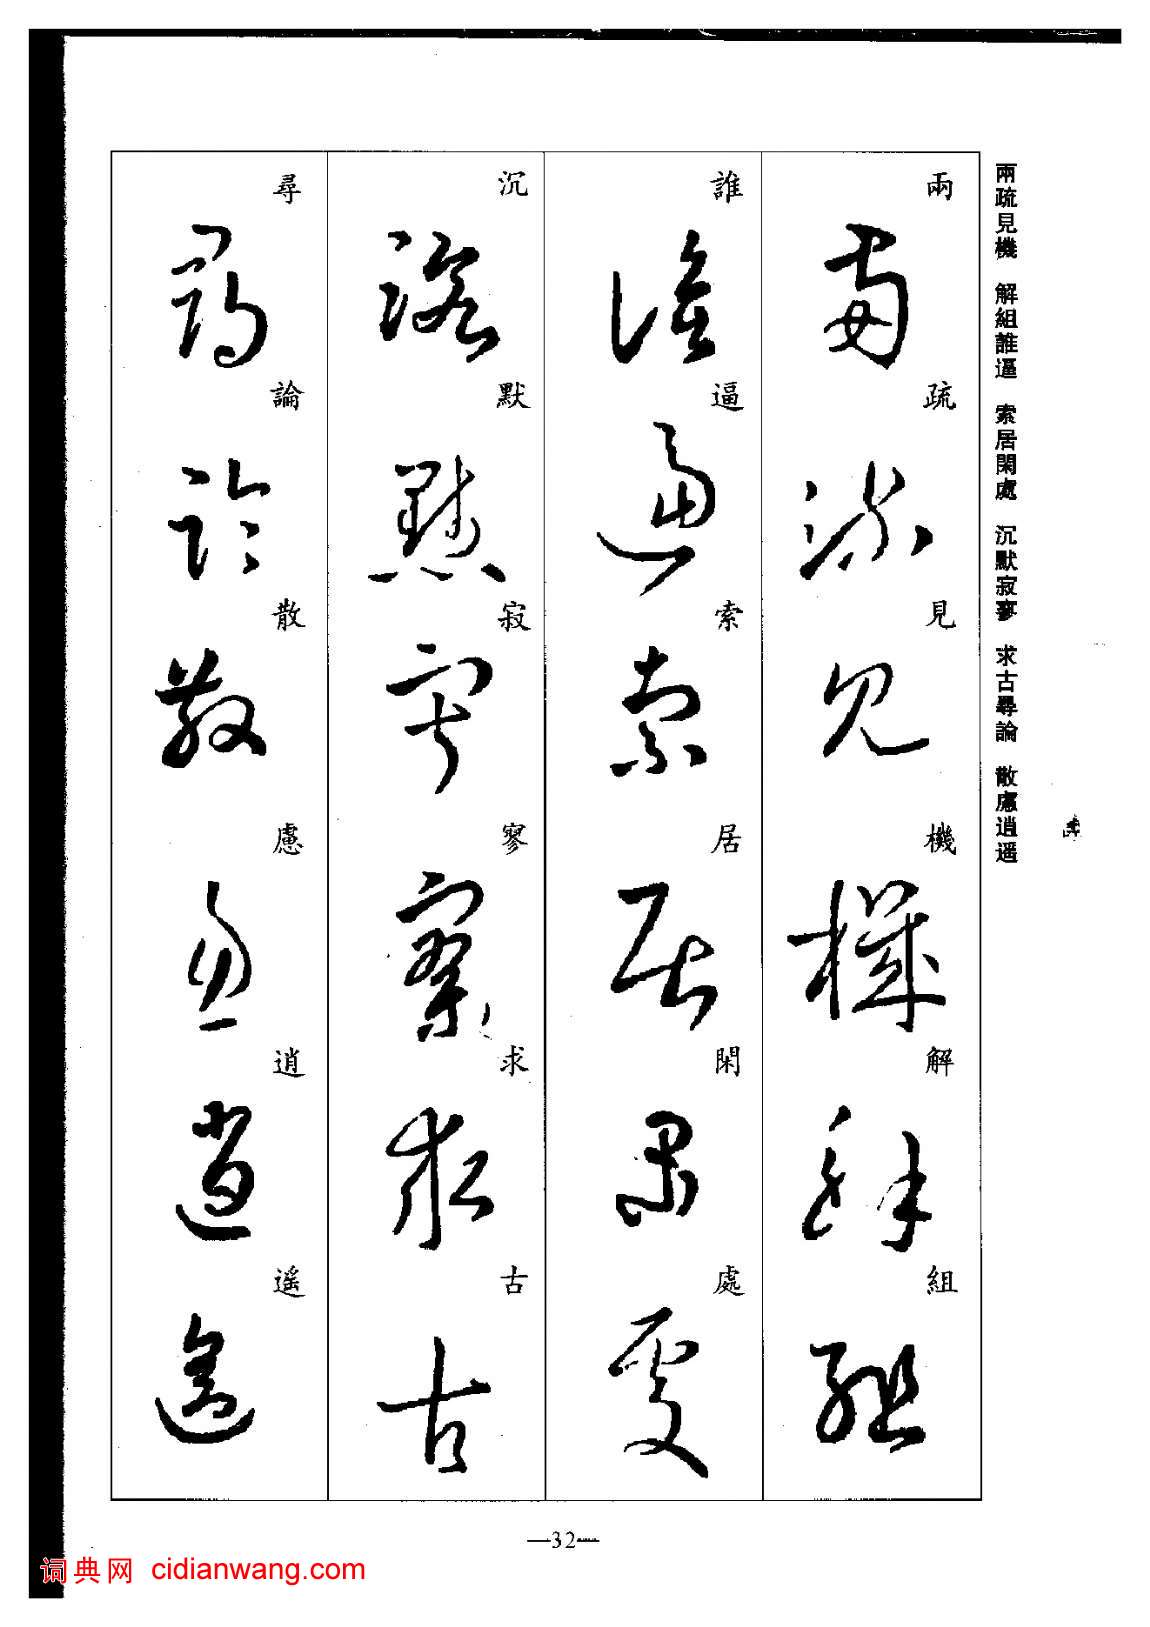 兩疏見機 解組誰逼 索居閑處 沉默寂寥 求古尋論 散慮逍遥
兩疏見機解組
誰逼索居閑處
沉默寂寥求古
尋論散慮逍遥
—32—
词典网 cidianwang.com